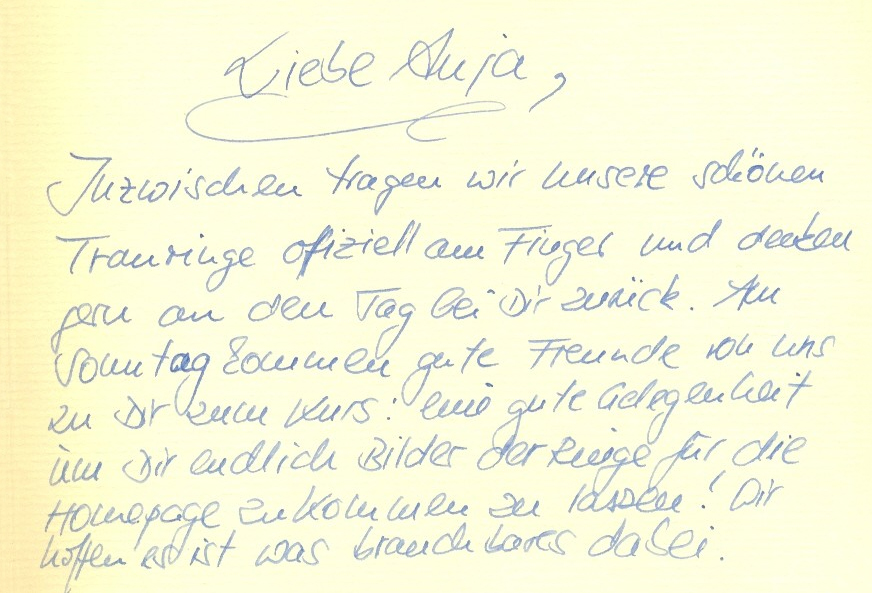 Liebe Anja,
Inzwischen tragen wir unsere schönen
Trauringe offiziell am Finger und denken
gern an den Tag bei Dir zurück. Am
Sonntag kommen gute Freunde von uns
zu Dir zum Kurs: eine gute Gelegenheit
um Dir endlich Bilder der Ringe für die
Homepage zukommen zu lassen! Wir
hoffen es ist was brauchbares dabei.